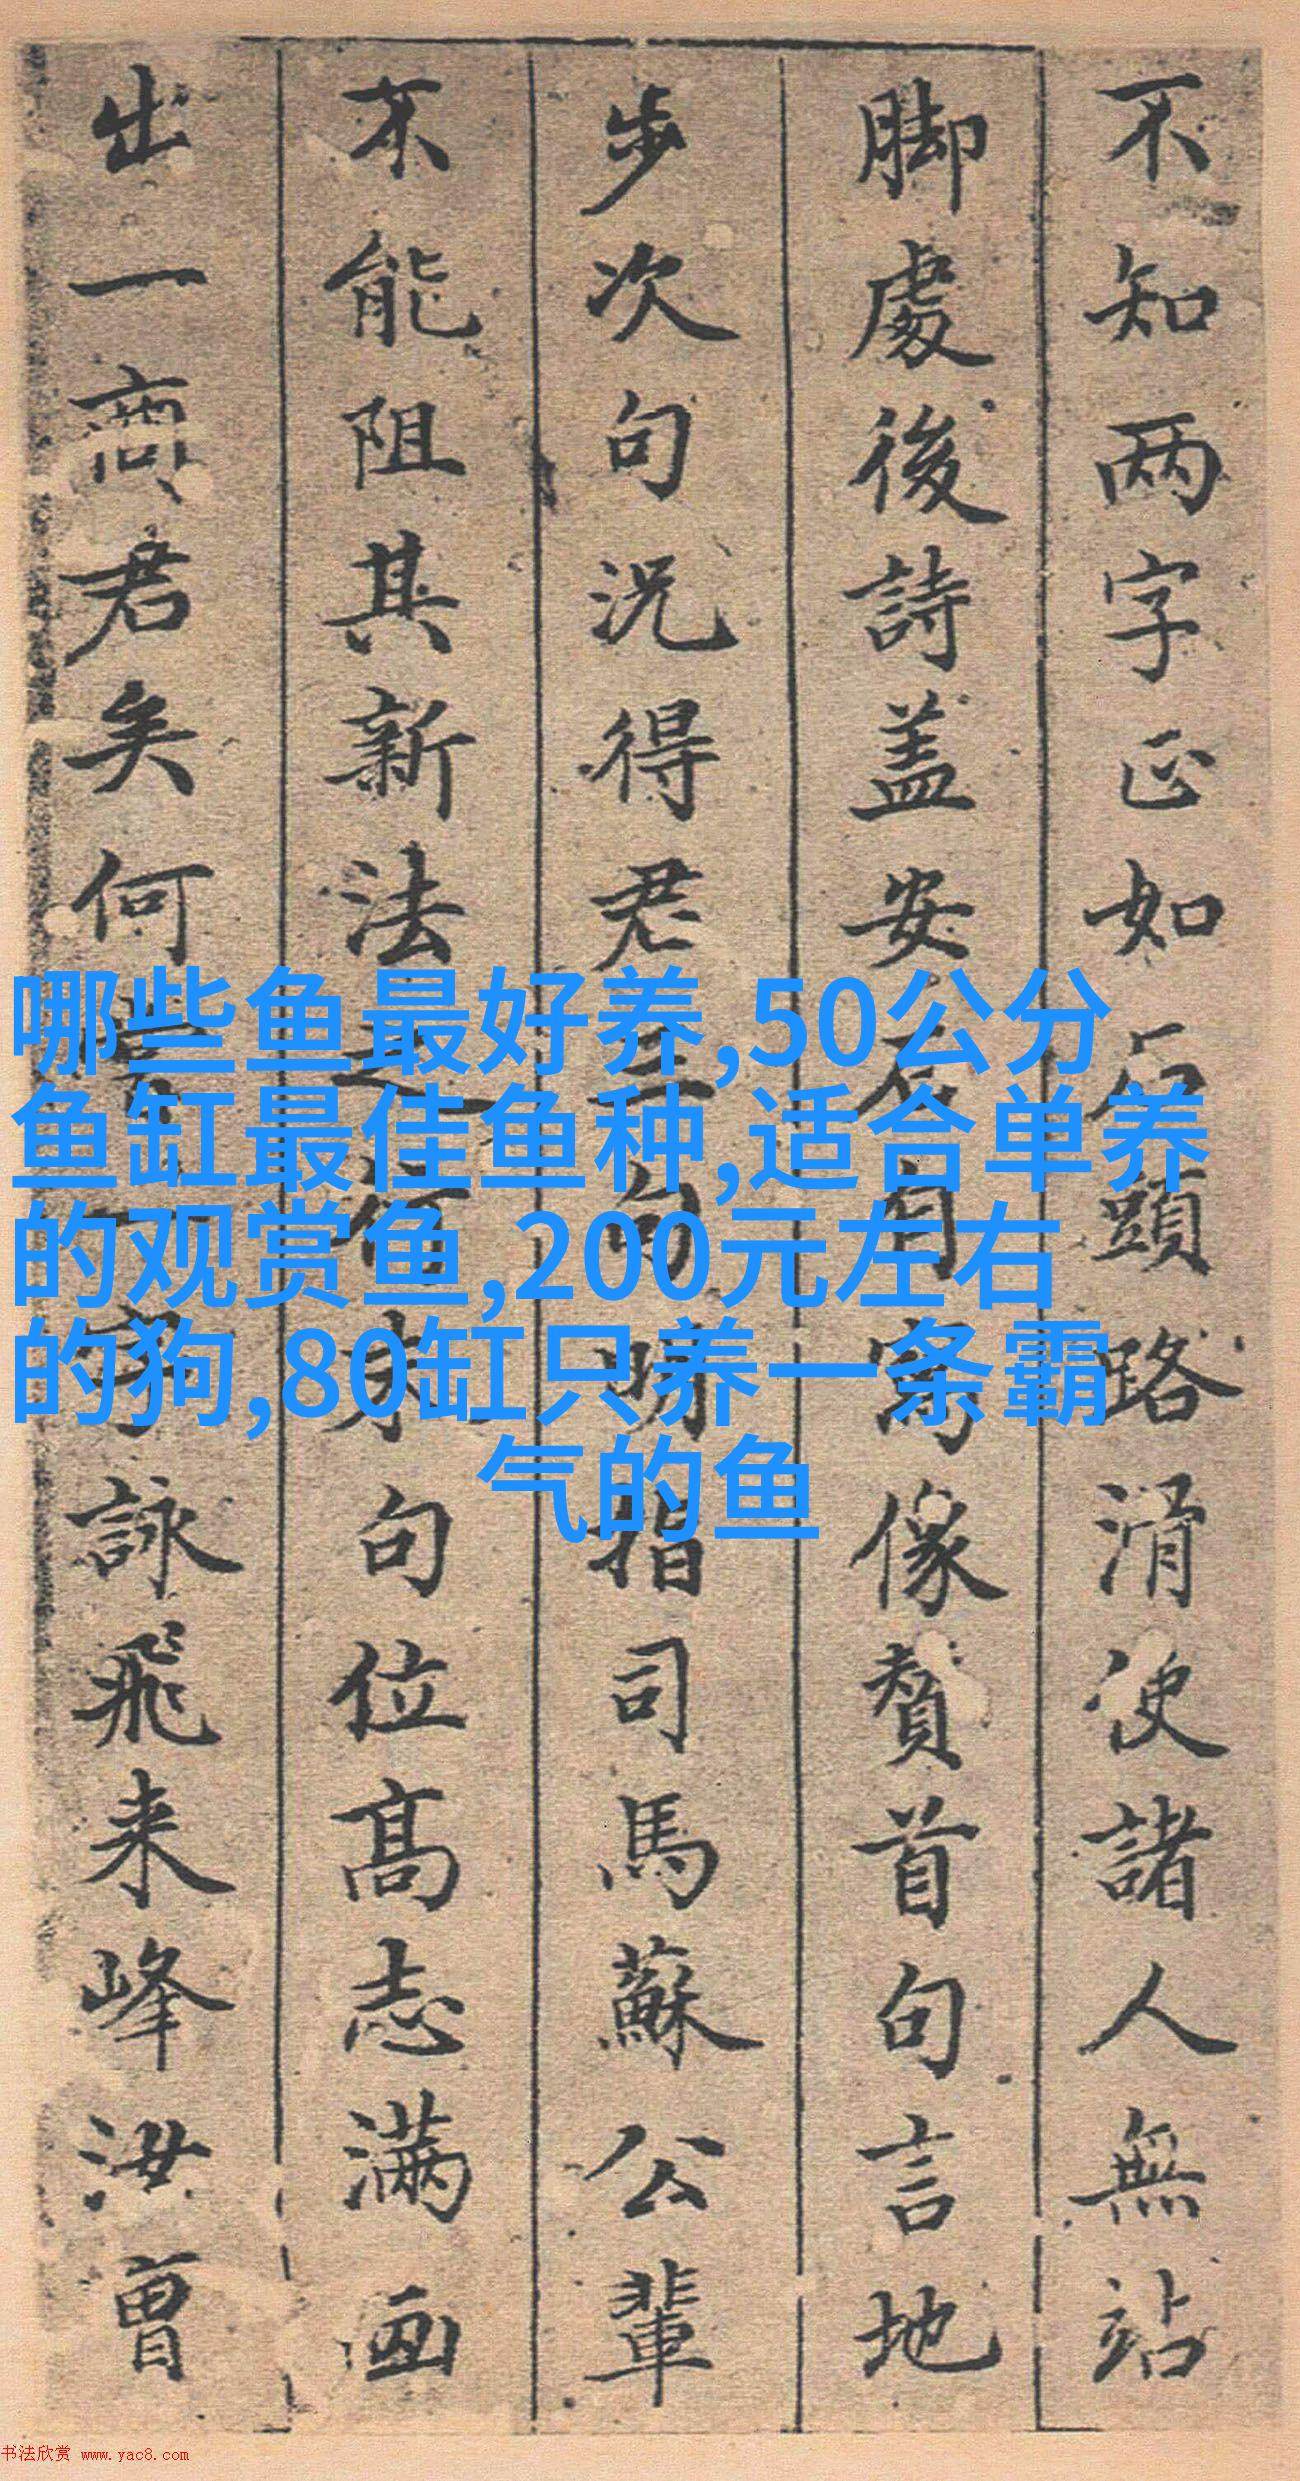 不知两字正如石頭路滑使諸人無站
脚處後詩盖安石寫像賛首句言地
步次句况得君三句明指司馬蘇公輩
不能阻其新法之行末句位高志满画
出一商君矣何字詠飛来峰汝曾
哪些鱼最好养,50公分
鱼缸最佳鱼种,适合单养
的观赏鱼,200元左右
的狗,80缸只养一条霸
气的鱼
书法欣赏 www.yac8.com